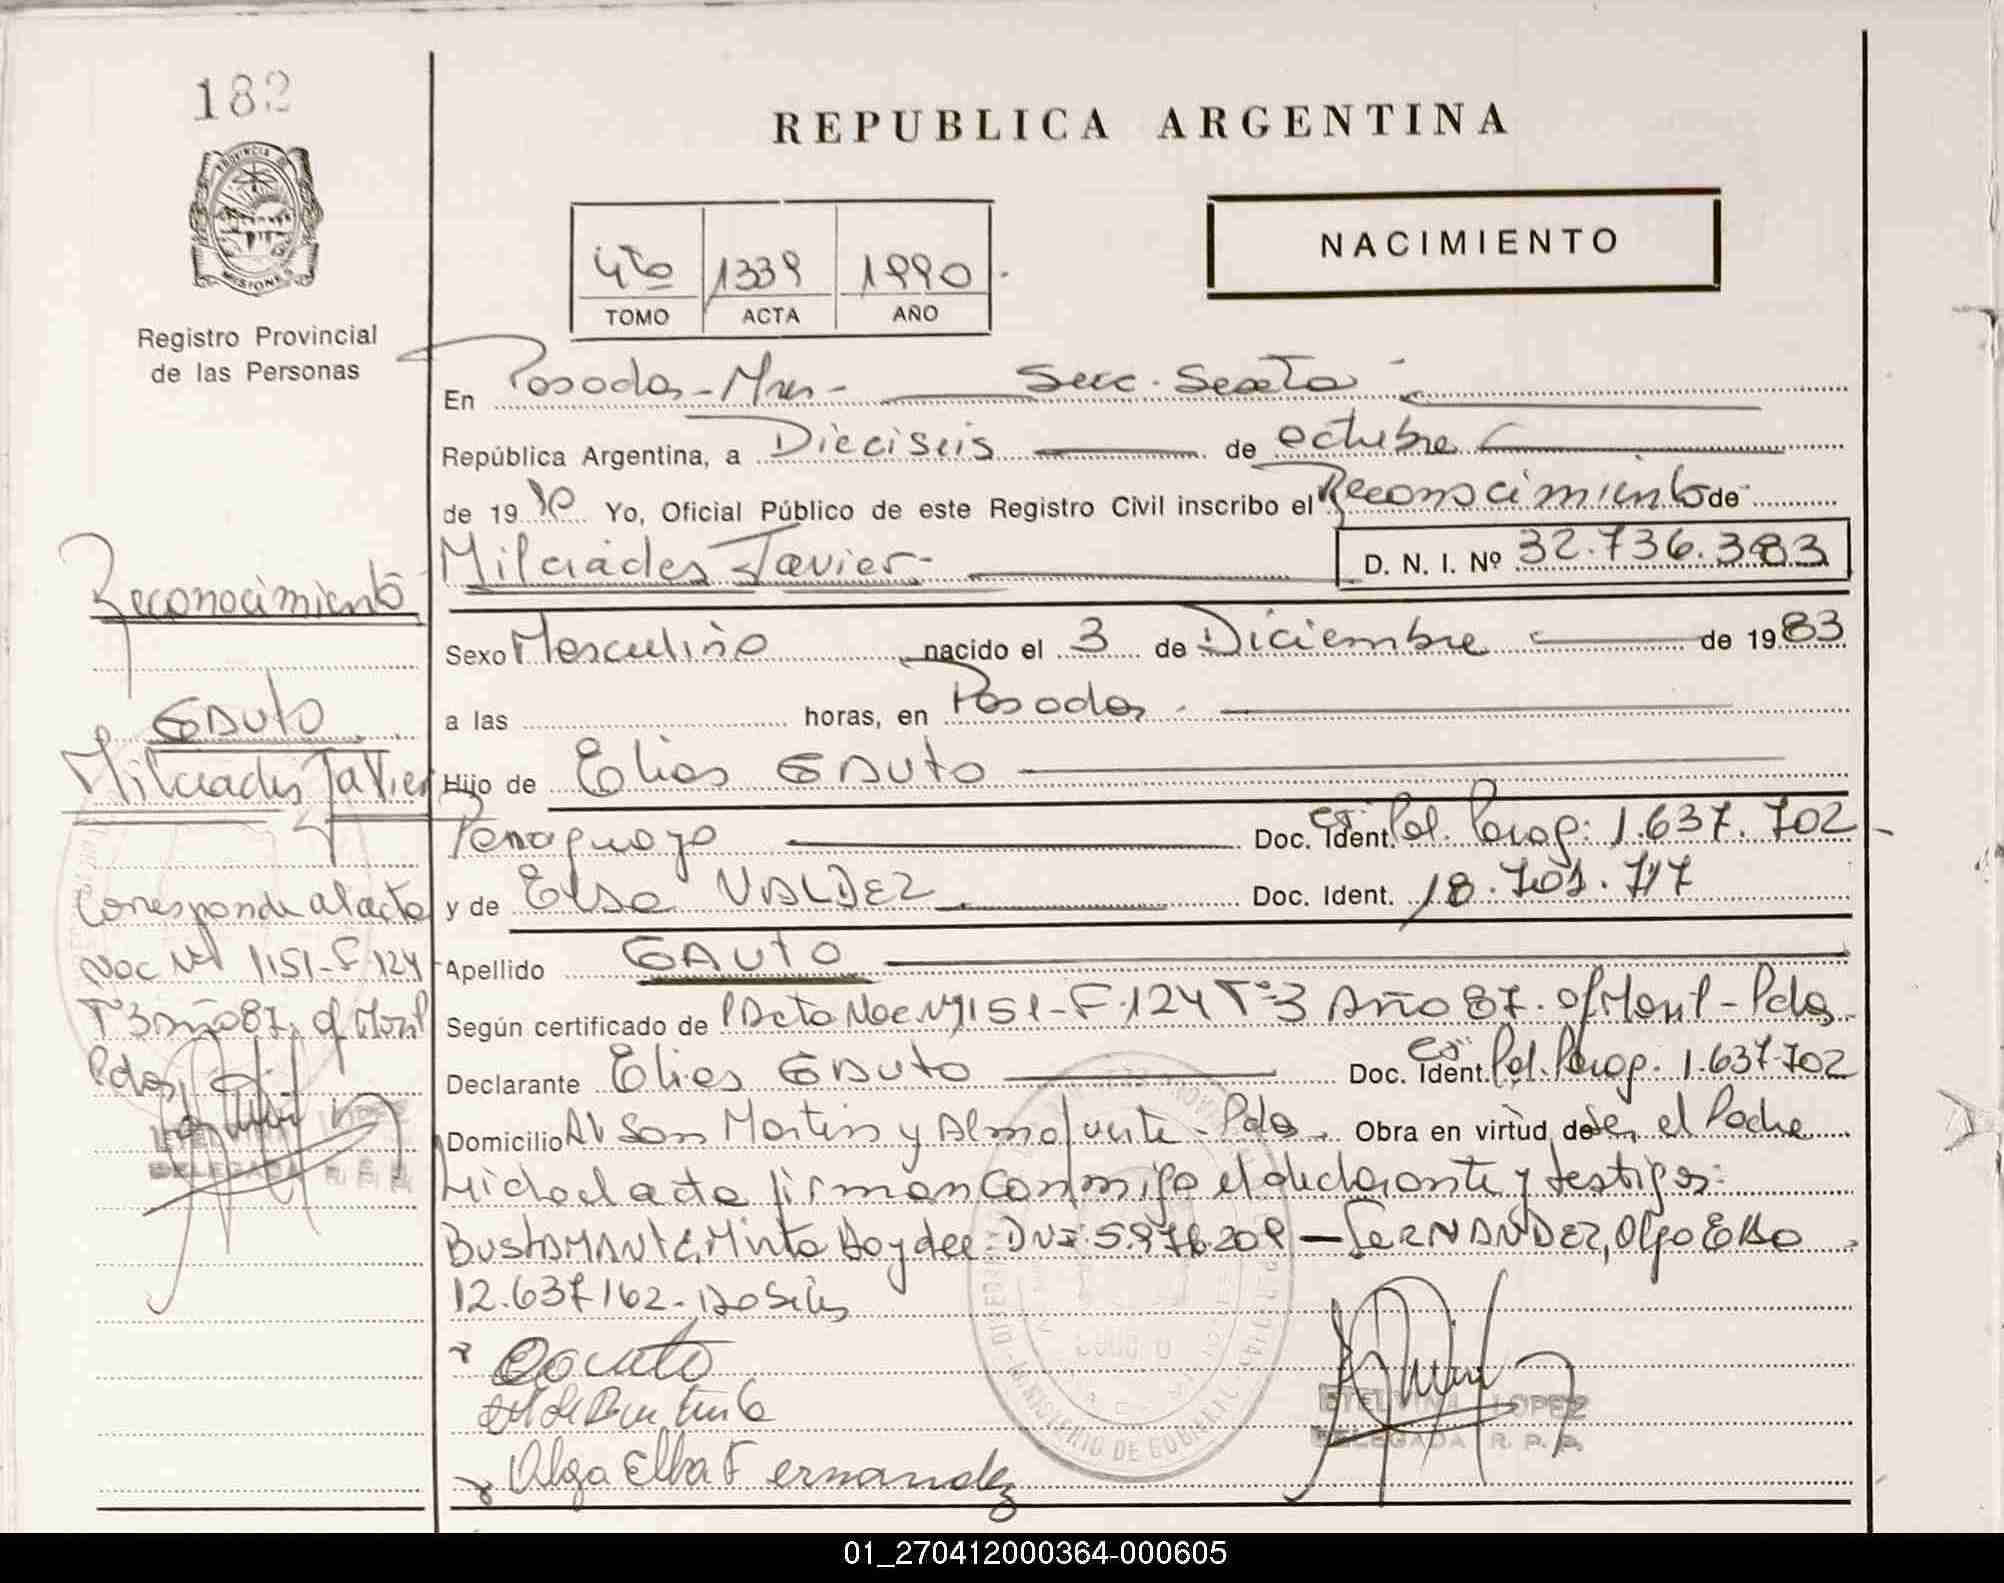 182
REPUBLICA ARGENTINA
NACIMIENTO
4to 1339 1990
TOMO ACTA AÑO
PROVINCIA DE MISIONES
Registro Provincial
de las Personas
En Posadas-Mnes- Secc. Sexta
República Argentina, a Dieciseis de octubre
de 1990 Yo, Oficial Público de este Registro Civil inscribo el Reconocimiento de
Milciades Javier- D. N. I. Nº 32.736.383
Sexo Masculino nacido el 3 de Diciembre de 1983
a las horas, en Posadas
Hijo de Elias GAUTO
Paraguayo Doc. Ident. Pol. Parag: 1.637.702
y de Elsa VALDEZ Doc. Ident. 18.701.717
Apellido GAUTO
Según certificado de Acta Nac Nº 1151-F.124 Tº3 Año 87. of Movil-Pdas
Declarante Elias GAUTO Doc. Ident. Pol. Parag. 1.637.702
Domicilio Av San Martin y Almafuerte-Pdas. Obra en virtud de ser el Padre
Leida el acta firman conmigo el declarante y testigos:
BUSTAMANTE, Mirta Haydee-DNI 5.976.209-FERNANDEZ, Olga Elba
12.637162-
Gauto
Olga Elba Fernandez
ETELVINA LOPEZ
DELEGADA R. P. P.
Reconocimiento
GAUTO
Milciades Javier
Corresponde al acta
Nac Nº 1151-F 124
Tº3 Año 87, of Movil
Pdas
LOPEZ
DELEGADA R. P. P.
MINISTERIO DE GOBIERNO
01_270412000364-000605